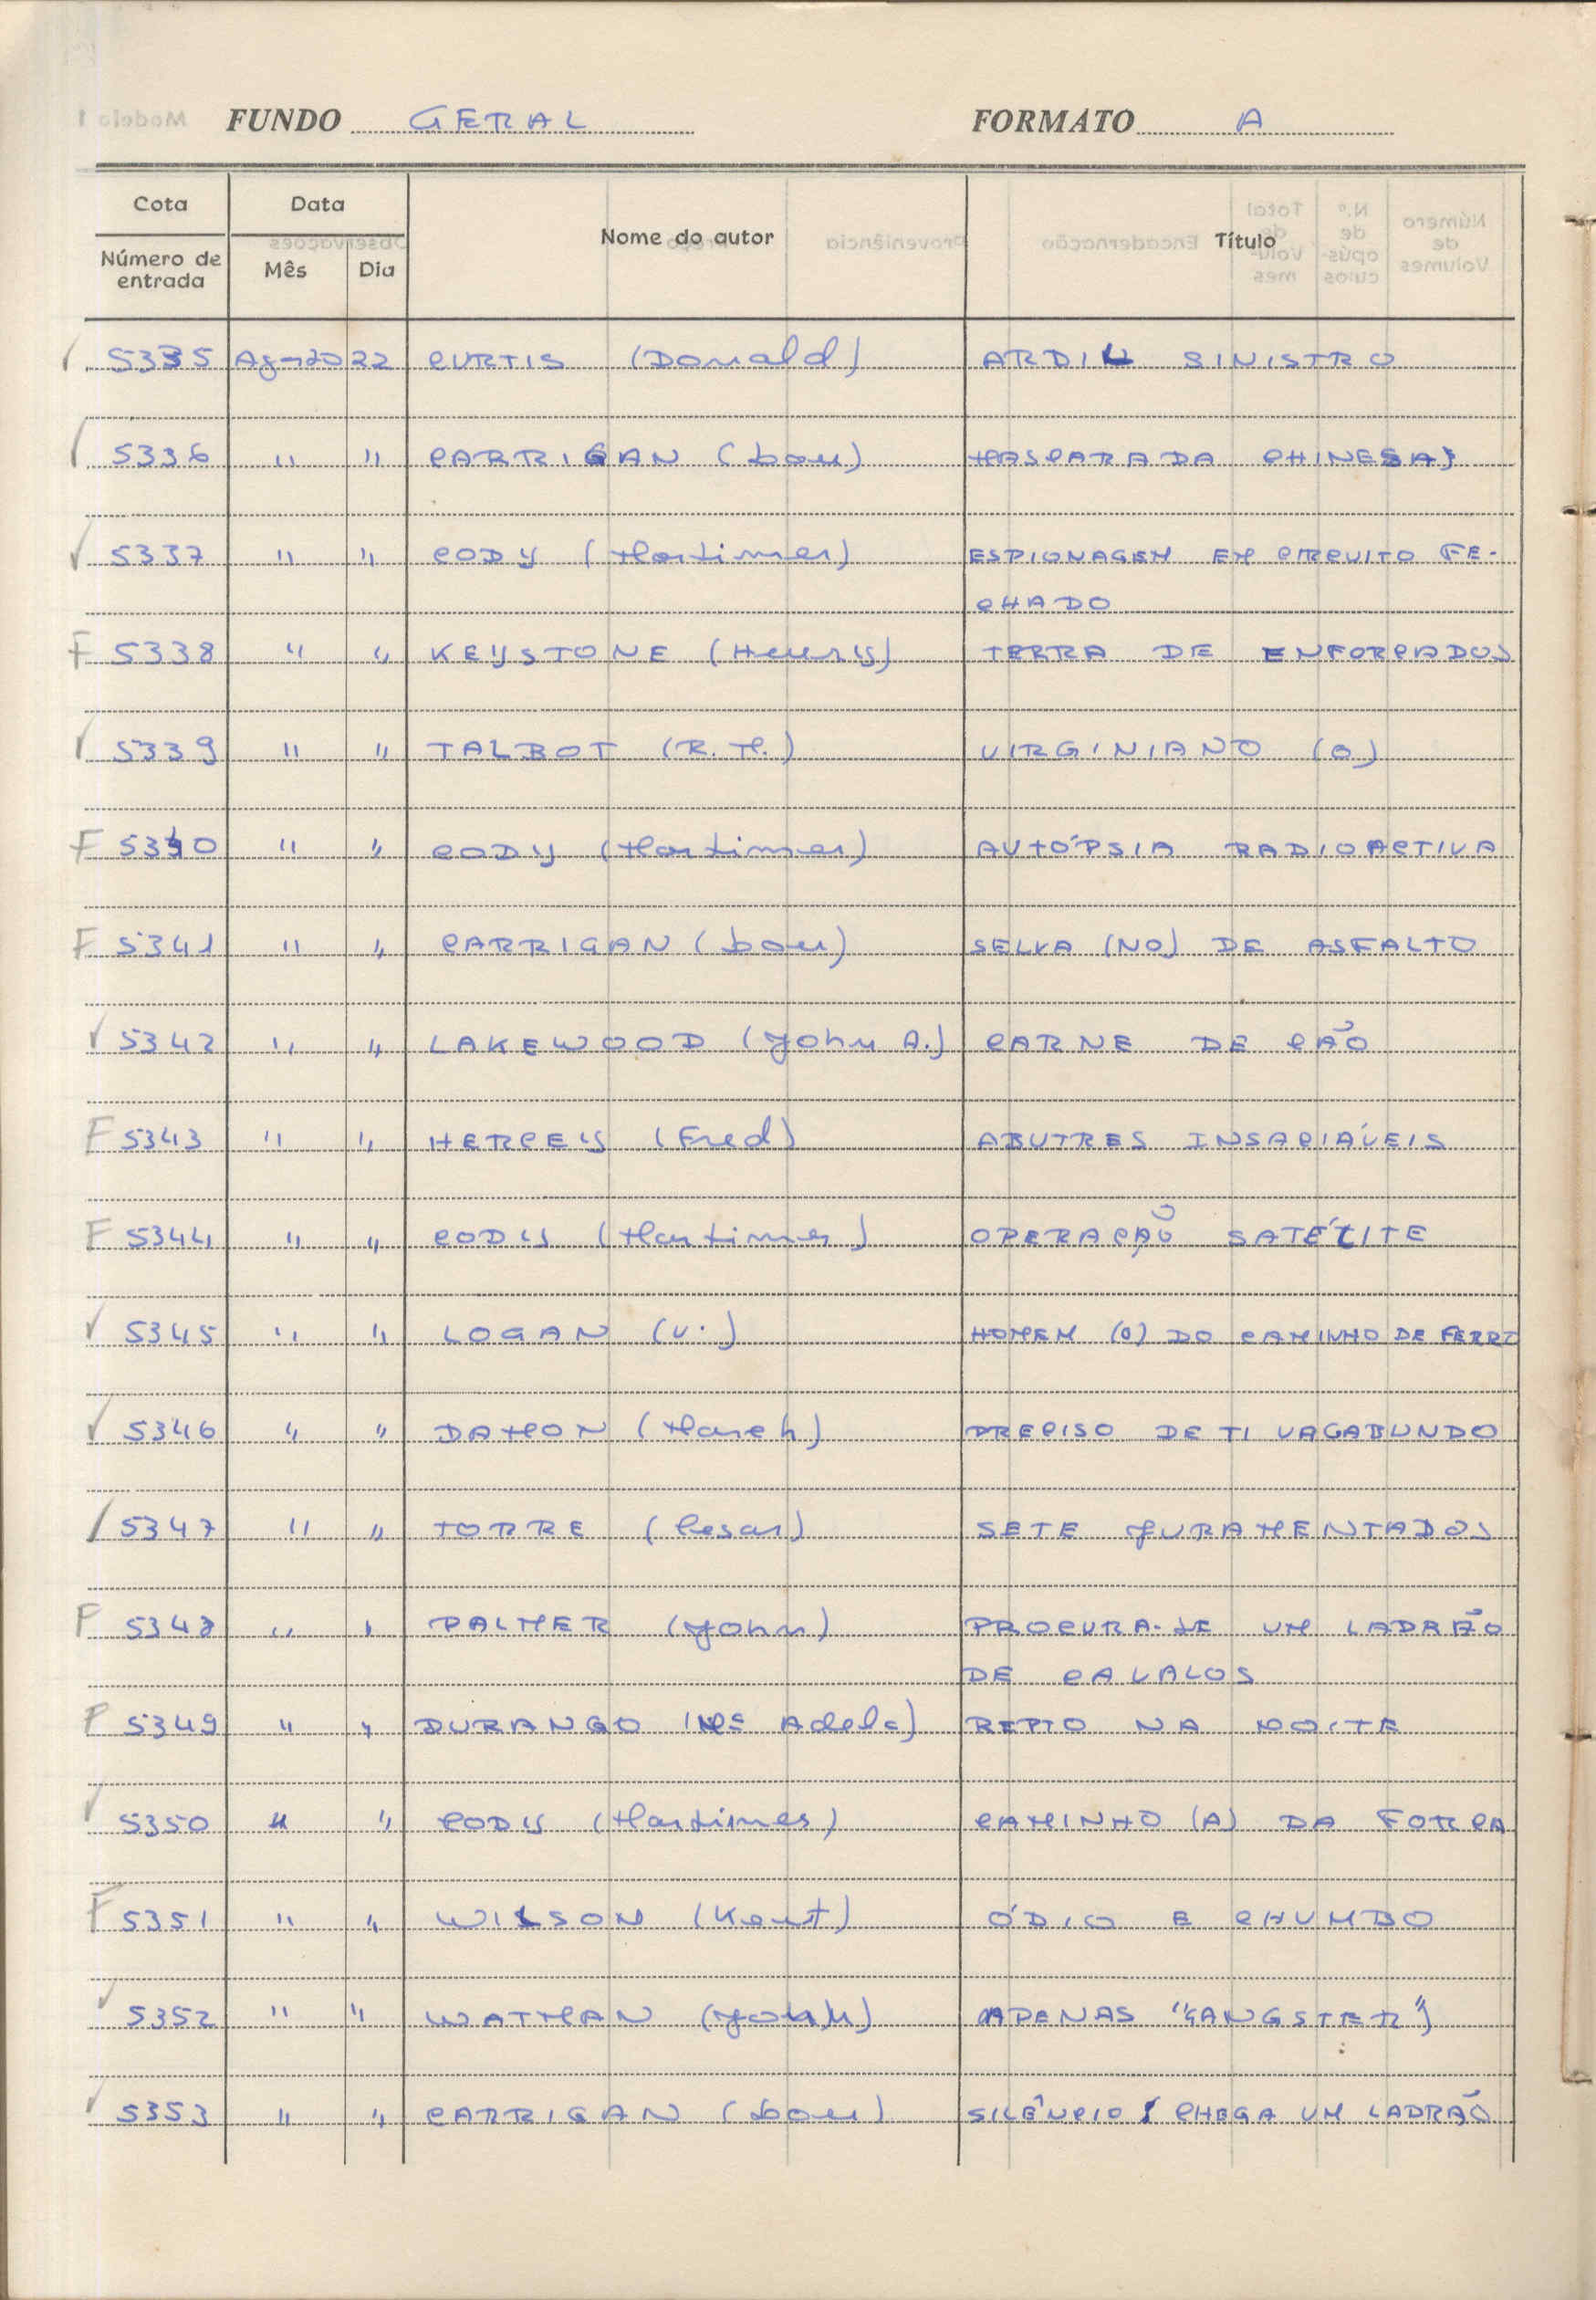 FUNDO GERAL FORMATO A
Cota Data Nome do autor Título
Número de entrada Mês Dia
5335 Agosto 22 CURTIS (Donald) ARDIL SINISTRO
5336 " " CARRIGAN (Lou) MASCARADA CHINESA
5337 " " CODY (Mortimer) ESPIONAGEM EM CIRCUITO FE-
CHADO
F 5338 " " KEYSTONE (Henry) TERRA DE ENFORCADOS
5339 " " TALBOT (R. M.) VIRGINIANO (O)
F 5340 " " CODY (Mortimer) AUTÓPSIA RADIOACTIVA
F 5341 " " CARRIGAN (Lou) SELVA (NO) DE ASFALTO
5342 " " LAKEWOOD (John A.) CARNE DE CÃO
F 5343 " " HERCEY (Fred) ABUTRES INSACIÁVEIS
F 5344 " " CODY (Mortimer) OPERAÇÃO SATÉLITE
5345 " " LOGAN (V.) HOMEM (O) DO CAMINHO DE FERRO
5346 " " DAMON (March) PRECISO DE TI VAGABUNDO
5347 " " TORRE (Cesar) SETE JURAMENTADOS
F 5348 " " PALMER (John) PROCURA-SE UM LADRÃO
DE CAVALOS
F 5349 " " DURANGO REPTO NA NOITE
5350 " " CODY (Mortimer) CAMINHO (A) DA FORCA
F 5351 " " WILSON (Kent) ÓDIO E CHUMBO
5352 " " WATMAN (John) APENAS "GANGSTER"
5353 " " CARRIGAN (Lou) SILÊNCIO! CHEGA UM LADRÃO